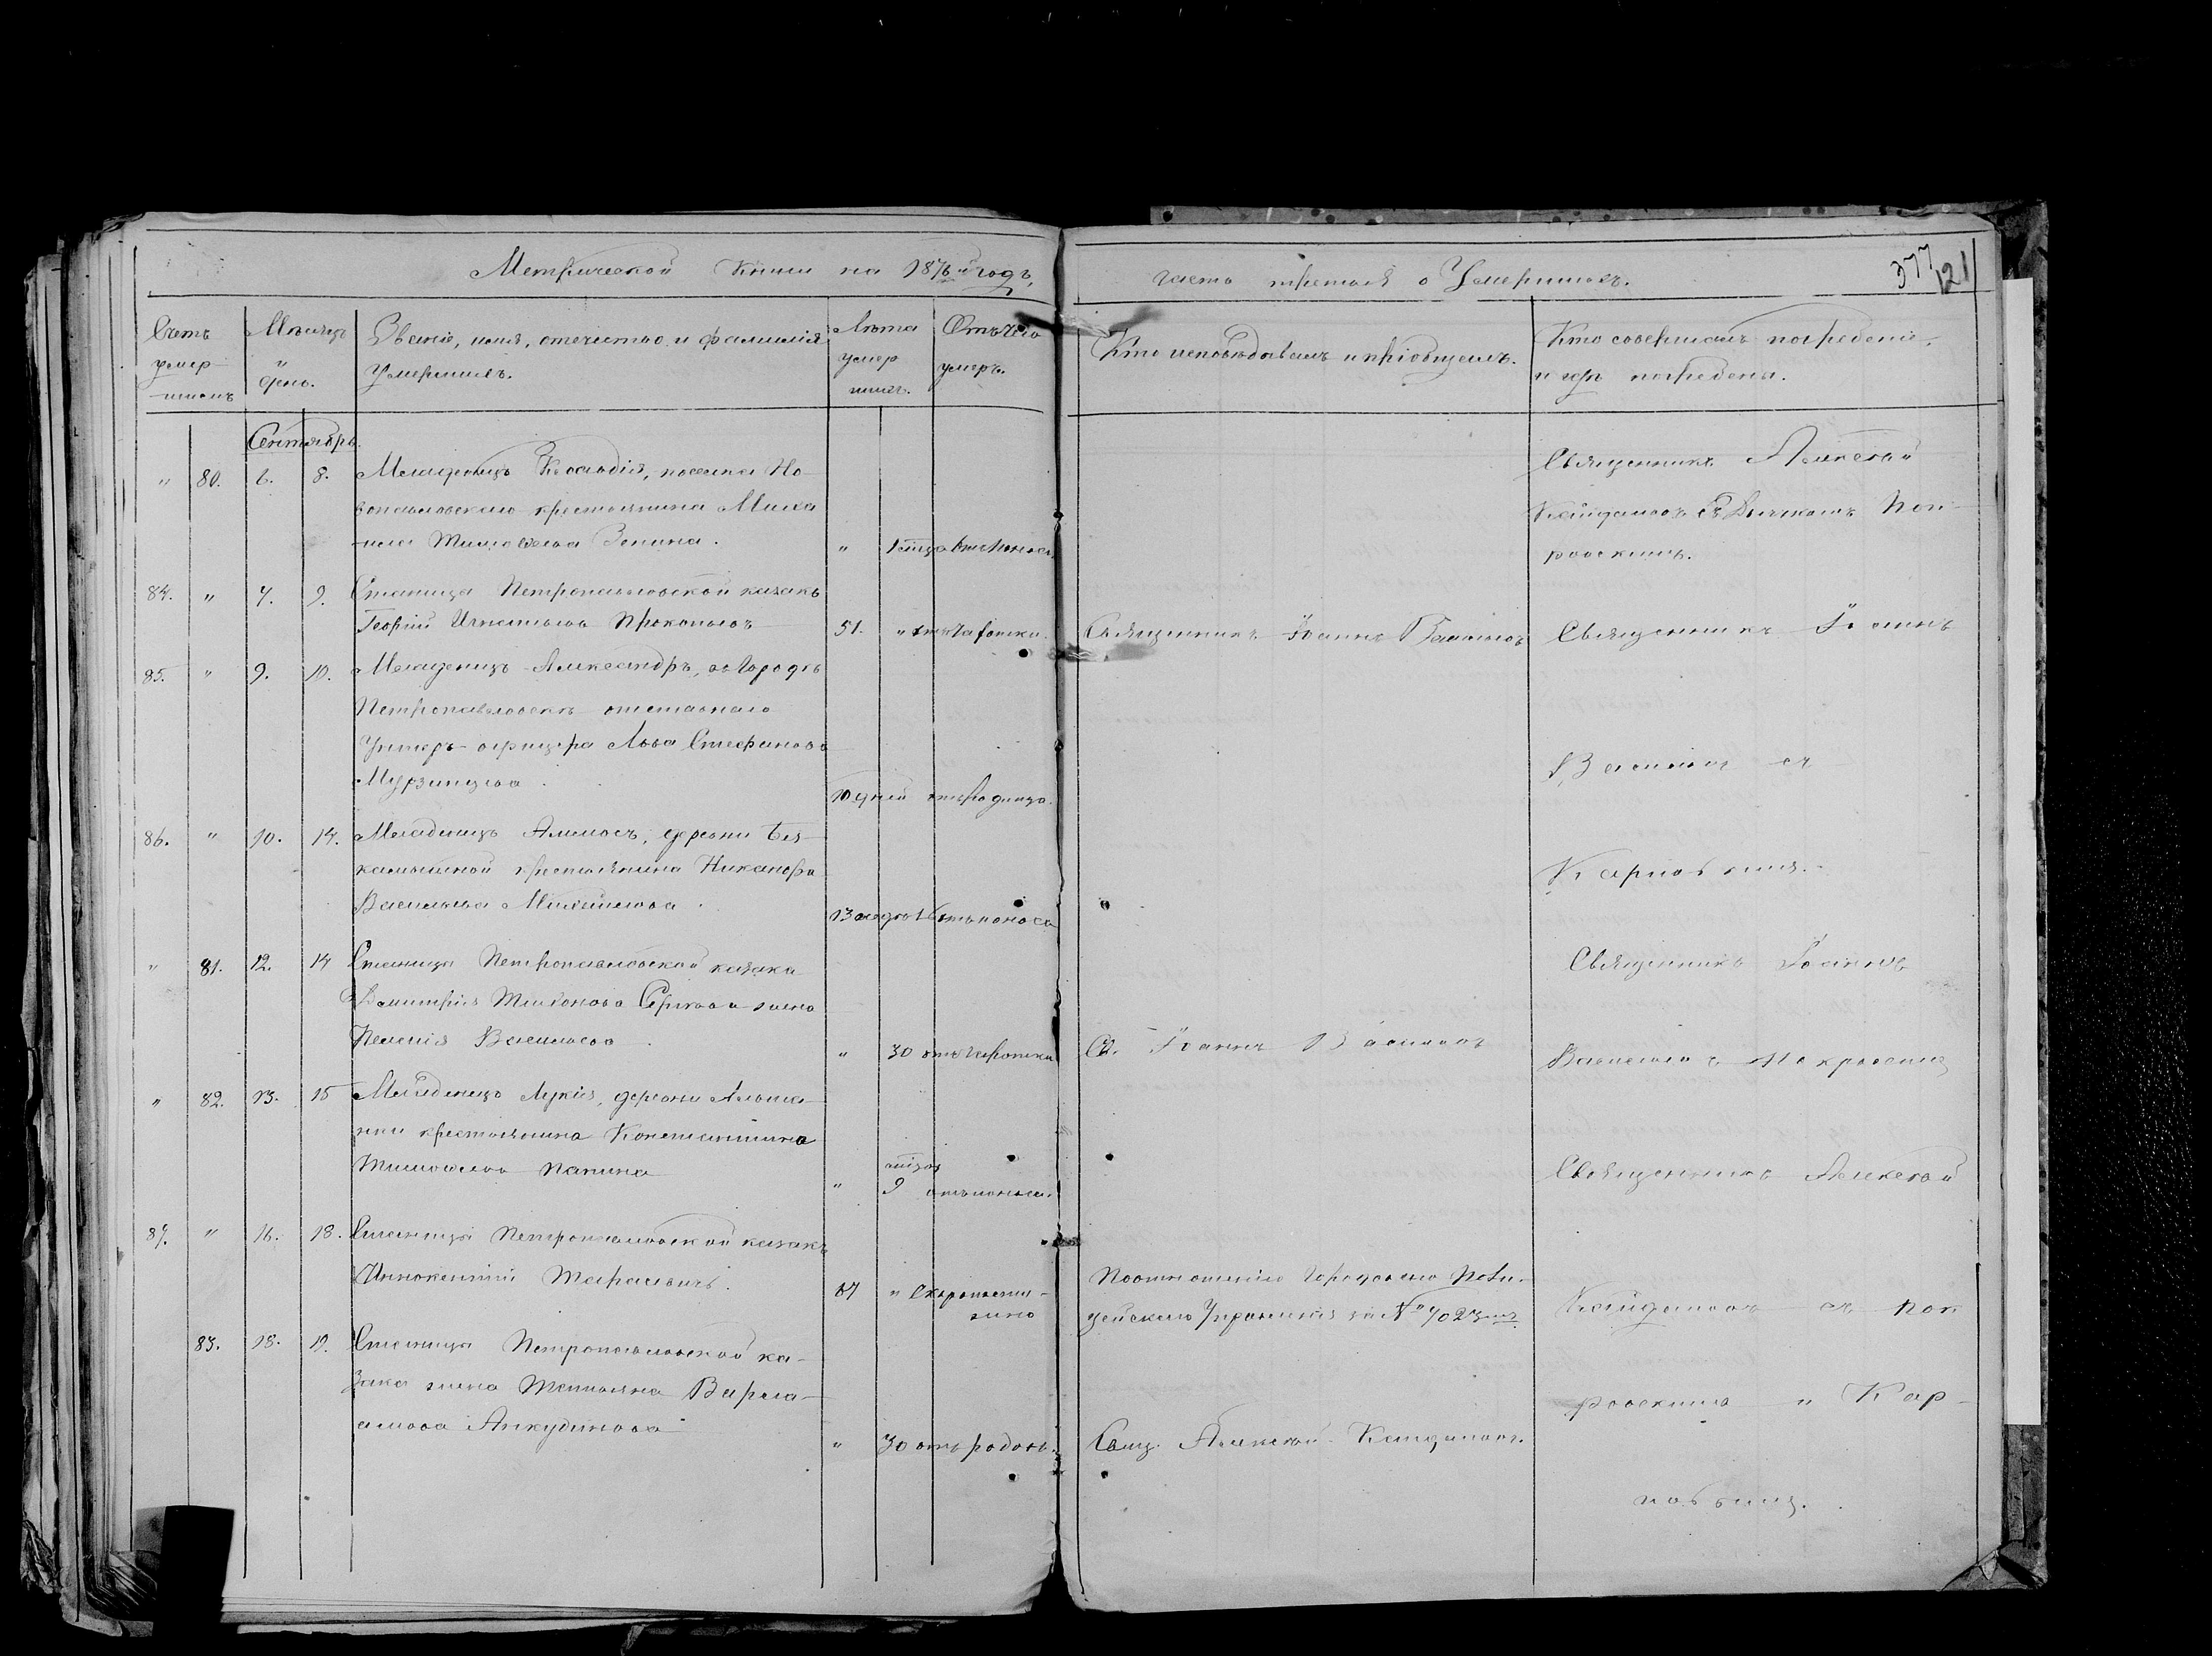 Метрической книги на 1876й годъ,
часть третья о Умершихъ.
377
121
Счетъ умер-шихъ
Мѣсяцъ и день.
Званіе, имя, отечество и фамилія Умершихъ.
Лѣта умер шихъ.
Отъ чего умеръ.
Кто исповѣдывалъ и пріобщалъ.
Кто совершалъ погребеніе, и гдѣ погребены.
Сентябрь.
" 80. 6. 8. Младенецъ Клавдія, поселка Но-
вопавловскаго крестьянина Миха
ила Тимофеева Зенина. " 1 мѣца отъ поноса.
Священникъ Алексѣй
Кайдаловъ съ Дьячкомъ Пок-
ровскимъ.
84. " 7. 9. Станицы Петропавловской казакъ
Георгій Игнатьевъ Прокопьевъ 51. " отъ чахотки. Священникъ Іоаннъ Васильевъ
Священникъ Іоаннъ
85. " 9. 10. Младенецъ Александръ, въ Городѣ
Петропавловскѣ отставнаго
Унтеръ-офицера Льва Стефанова
Мурзинцева. 10 дней отъ родимца.
Васильевъ съ
86. " 10. 14. Младенецъ Амплій, деревни Бъл-
камышной крестьянина Никанора
Васильева отъ поноса
Карповымъ.
" 81. 12. 14 Станицы Петропавловской казака
Димитрія Тихонова Серкова жена
Пелагія Васильева. " 30 отъ чахотки Св. Іоаннъ Васильевъ
Священникъ Іоаннъ
Васильевъ Покровскимъ
" 82. 13. 15 Младенецъ Лукія, деревни
крестьянина Константина
Тимофеева Папина " 9 мѣцовъ отъ поноса.
Священникъ Алексѣй
87. " 16. 18. Станицы Петропавловской казакъ
Иннокентій Тарасовичъ. 67 " Скоропости-
жно
По отношенію Городскаго Поли-
цейскаго Управленія за № 4023мъ.
Кайдаловъ съ Пок
83. 18. 19. Станицы Петропавловской ка-
зака жена Татьяна Варла-
амова Анкудинова " 30 отъ родовъ. Свящ. Алексѣй Кайдаловъ.
ровскимъ и Кар-
повымъ.